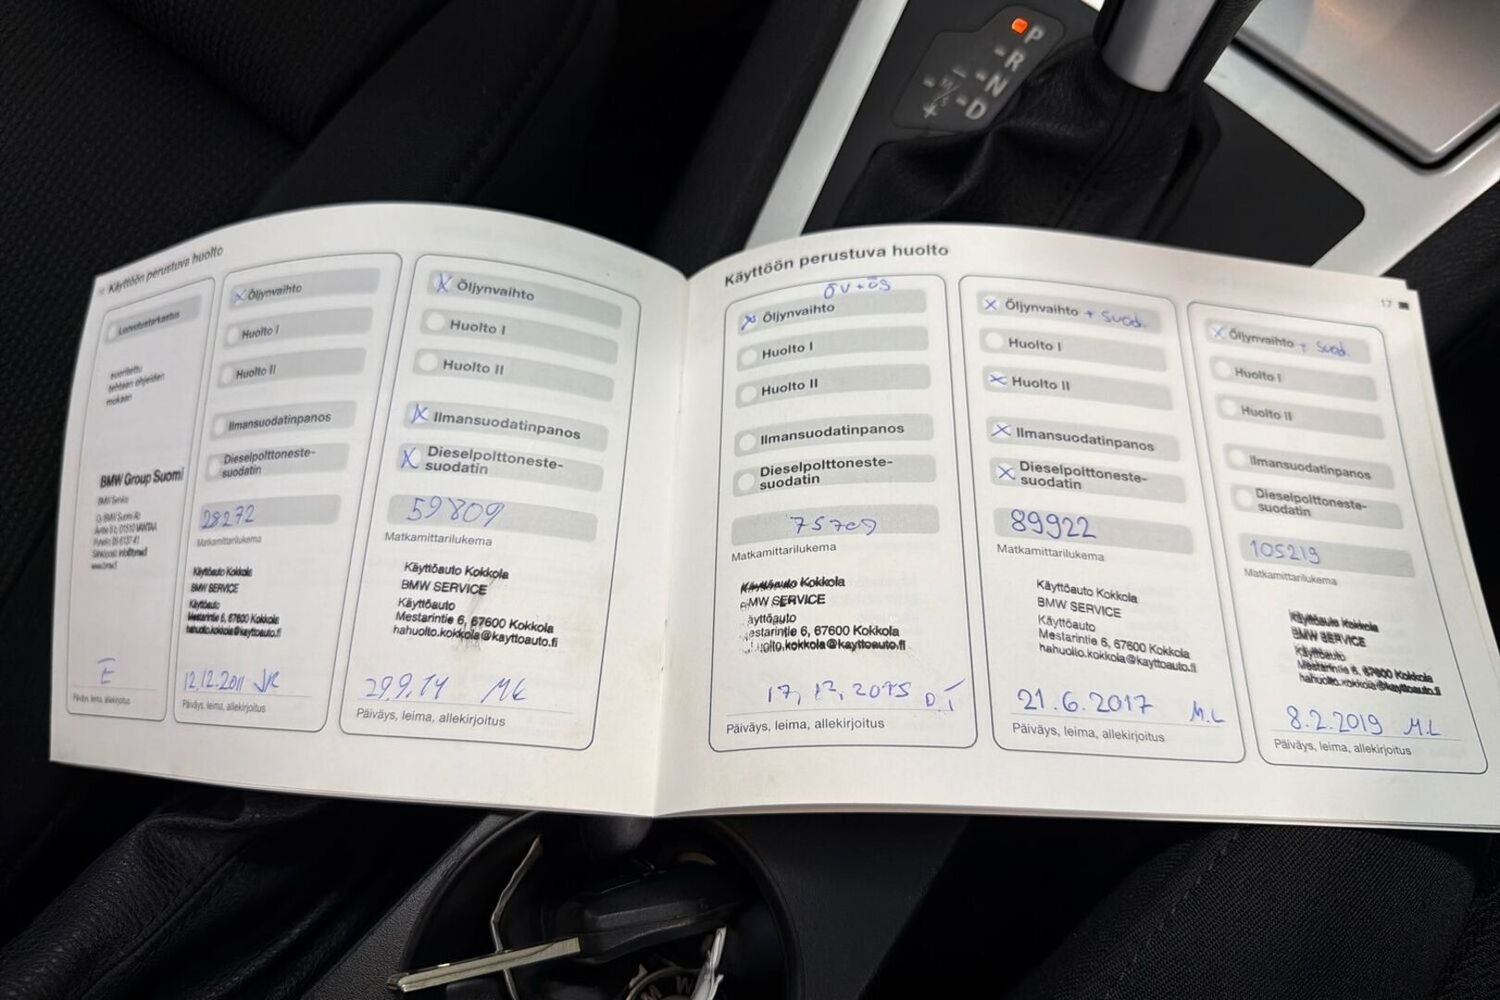 P
R
N
D
M/S
+
Käyttöön perustuva huolto
Luovutustarkastus
suoritettu
tehtaan ohjeiden
mukaan
BMW Group Suomi
BMW Service
Oy BMW Suomi Ab
E
Päiväys, leima, allekirjoitus
X Öljynvaihto
Huolto I
Huolto II
Ilmansuodatinpanos
Dieselpolttoneste-
suodatin
28272
Matkamittarilukema
Käyttöauto Kokkola
BMW SERVICE
Käyttöauto
Mestarintie 6, 67600 Kokkola
hahuolto.kokkola@kayttoauto.fi
12.12.2011 JR
Päiväys, leima, allekirjoitus
X Öljynvaihto
Huolto I
Huolto II
X Ilmansuodatinpanos
X Dieselpolttoneste-
suodatin
59809
Matkamittarilukema
Käyttöauto Kokkola
BMW SERVICE
Käyttöauto
Mestarintie 6, 67600 Kokkola
hahuolto.kokkola@kayttoauto.fi
29.9.14 MK
Päiväys, leima, allekirjoitus
Käyttöön perustuva huolto
17
ÖV+ÖS
X Öljynvaihto
Huolto I
Huolto II
Ilmansuodatinpanos
Dieselpolttoneste-
suodatin
75709
Matkamittarilukema
Käyttöauto Kokkola
BMW SERVICE
äyttöauto
estarintie 6, 67600 Kokkola
uolto.kokkola@kayttoauto.fi
17.12.2015 D.T
Päiväys, leima, allekirjoitus
X Öljynvaihto + suod.
Huolto I
X Huolto II
X Ilmansuodatinpanos
X Dieselpolttoneste-
suodatin
89922
Matkamittarilukema
Käyttöauto Kokkola
BMW SERVICE
Käyttöauto
Mestarintie 6, 67600 Kokkola
hahuolto.kokkola@kayttoauto.fi
21.6.2017 M.L
Päiväys, leima, allekirjoitus
X Öljynvaihto + suod.
Huolto I
Huolto II
Ilmansuodatinpanos
Dieselpolttoneste-
suodatin
105219
Matkamittarilukema
Käyttöauto Kokkola
BMW SERVICE
Käyttöauto
Mestarintie 6, 67600 Kokkola
hahuolto.kokkola@kayttoauto.fi
8.2.2019 M.L
Päiväys, leima, allekirjoitus
M W